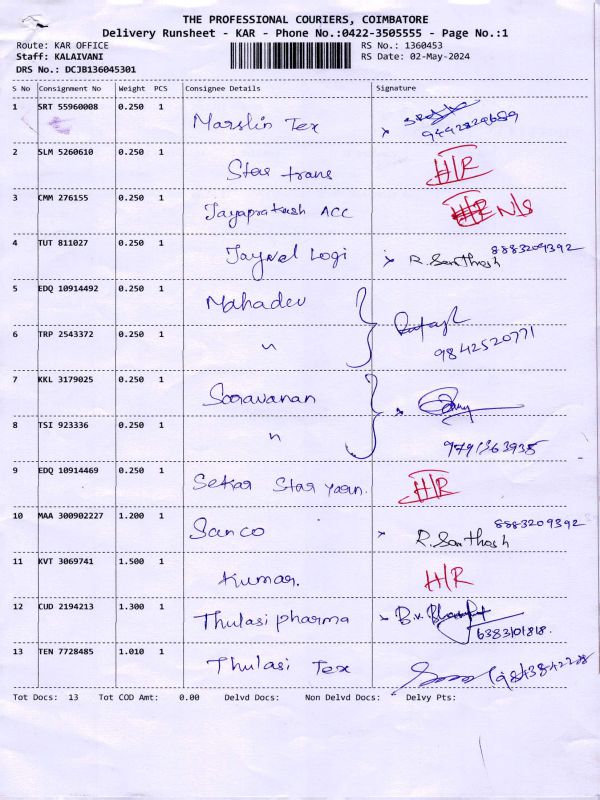 THE PROFESSIONAL COURIERS, COIMBATORE
Delivery Runsheet - KAR - Phone No.:0422-3505555 - Page No.:1
Route: KAR OFFICE RS No.: 1360453
Staff: KALAIVANI RS Date: 02-May-2024
DRS No.: DCJB136045301
S No Consignment No Weight PCS Consignee Details Signature
1 SRT 55960008 0.250 1 Marslin Tex
2 SLM 5260610 0.250 1 Star trans H/R
3 CMM 276155 0.250 1 Jayaprakash ACC N/S
4 TUT 811027 0.250 1 Jaynel Logi R. Santhosh 8883209392
5 EDQ 10914492 0.250 1 Mahadev
6 TRP 2543372 0.250 1 " 9842520771
7 KKL 3179025 0.250 1 Saravanan
8 TSI 923336 0.250 1 " 9791363935
9 EDQ 10914469 0.250 1 Sekar Star yarn. H/R
10 MAA 300902227 1.200 1 Sanco R. Santhosh 8883209392
11 KVT 3069741 1.500 1 Kumar. H/R
12 CUD 2194213 1.300 1 Thulasi pharma B.v. 6383101818.
13 TEN 7728485 1.010 1 Thulasi Tex
Tot Docs: 13 Tot COD Amt: 0.00 Delvd Docs: Non Delvd Docs: Delvy Pts: